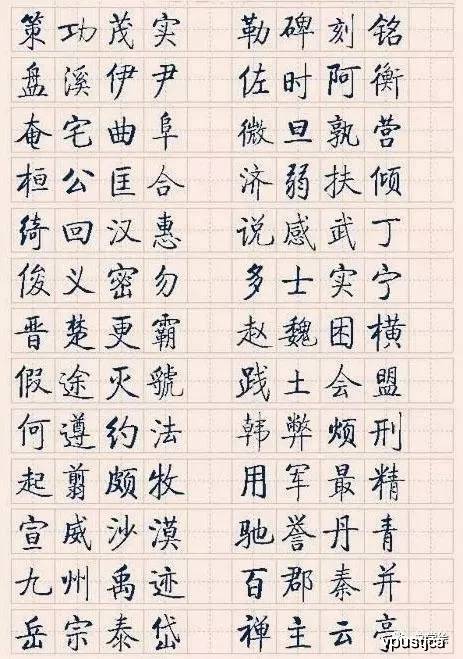 策功茂实 勒碑刻铭
盘溪伊尹 佐时阿衡
奄宅曲阜 微旦孰营
桓公匡合 济弱扶倾
绮回汉惠 说感武丁
俊义密勿 多士实宁
晋楚更霸 赵魏困横
假途灭虢 践土会盟
何遵约法 韩弊烦刑
起翦颇牧 用军最精
宣威沙漠 驰誉丹青
九州禹迹 百郡秦并
岳宗泰岱 禅主云亭
ypustjca